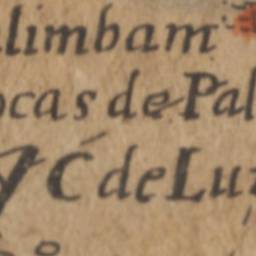 alimbam
ocas de Pal
y C de Lu